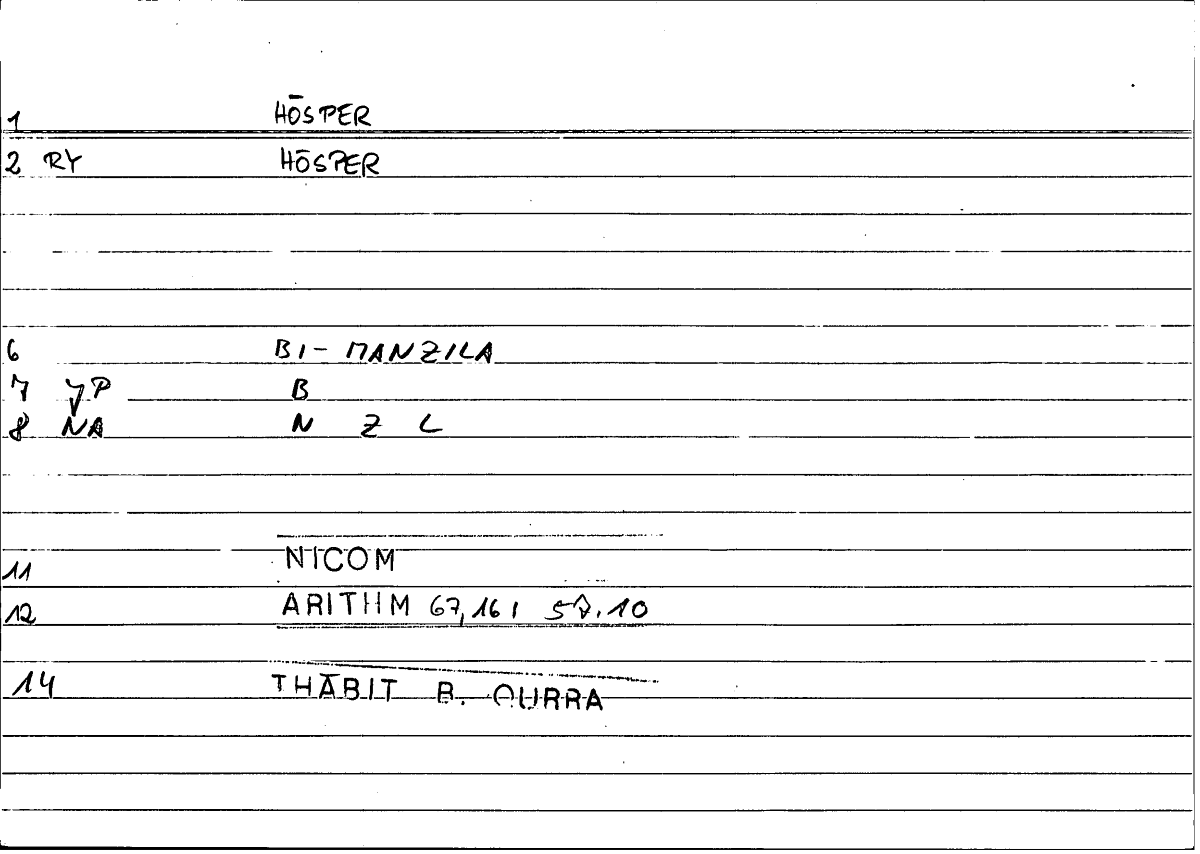 1 HŌSPER
2 RY HŌSPER
6 BI- MANZILA
7 JP B
8 NA N Z L
11 NICOM
12 ARITHM 67,16 / .10
14 THĀBIT B. QURRA